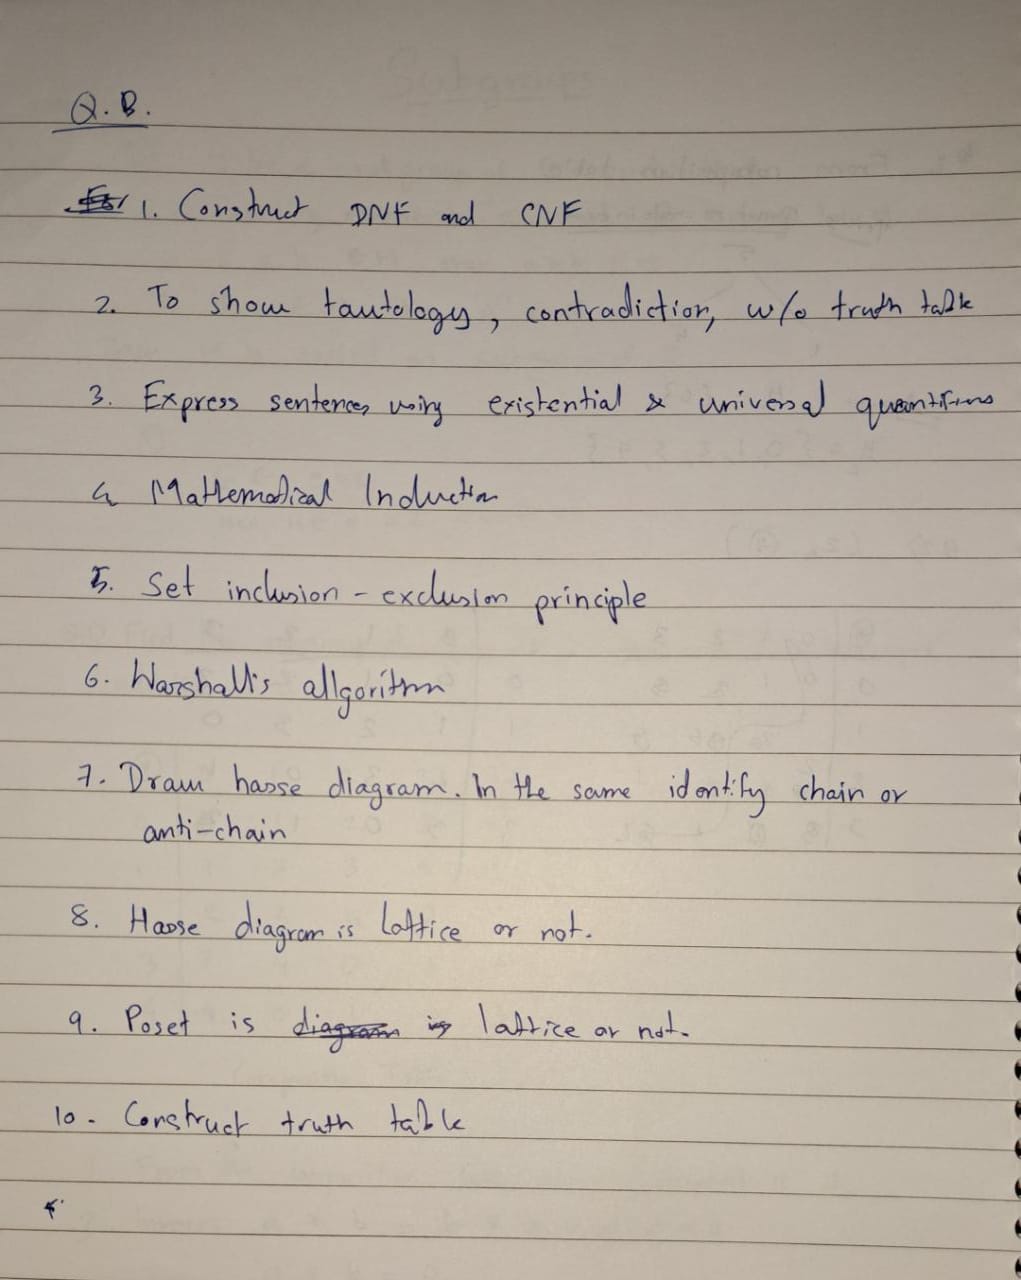 Q.B.
1. Construct DNF and CNF
2. To show tautology, contradiction, w/o truth table
3. Express sentences using existential & universal quantifiers
4. Mathematical Induction
5. Set inclusion - exclusion principle
6. Warshall's allgorithm
7. Draw hasse diagram. In the same identify chain or
anti-chain
8. Hasse diagram is lattice or not.
9. Poset is diagram is lattice or not.
10. Construct truth table